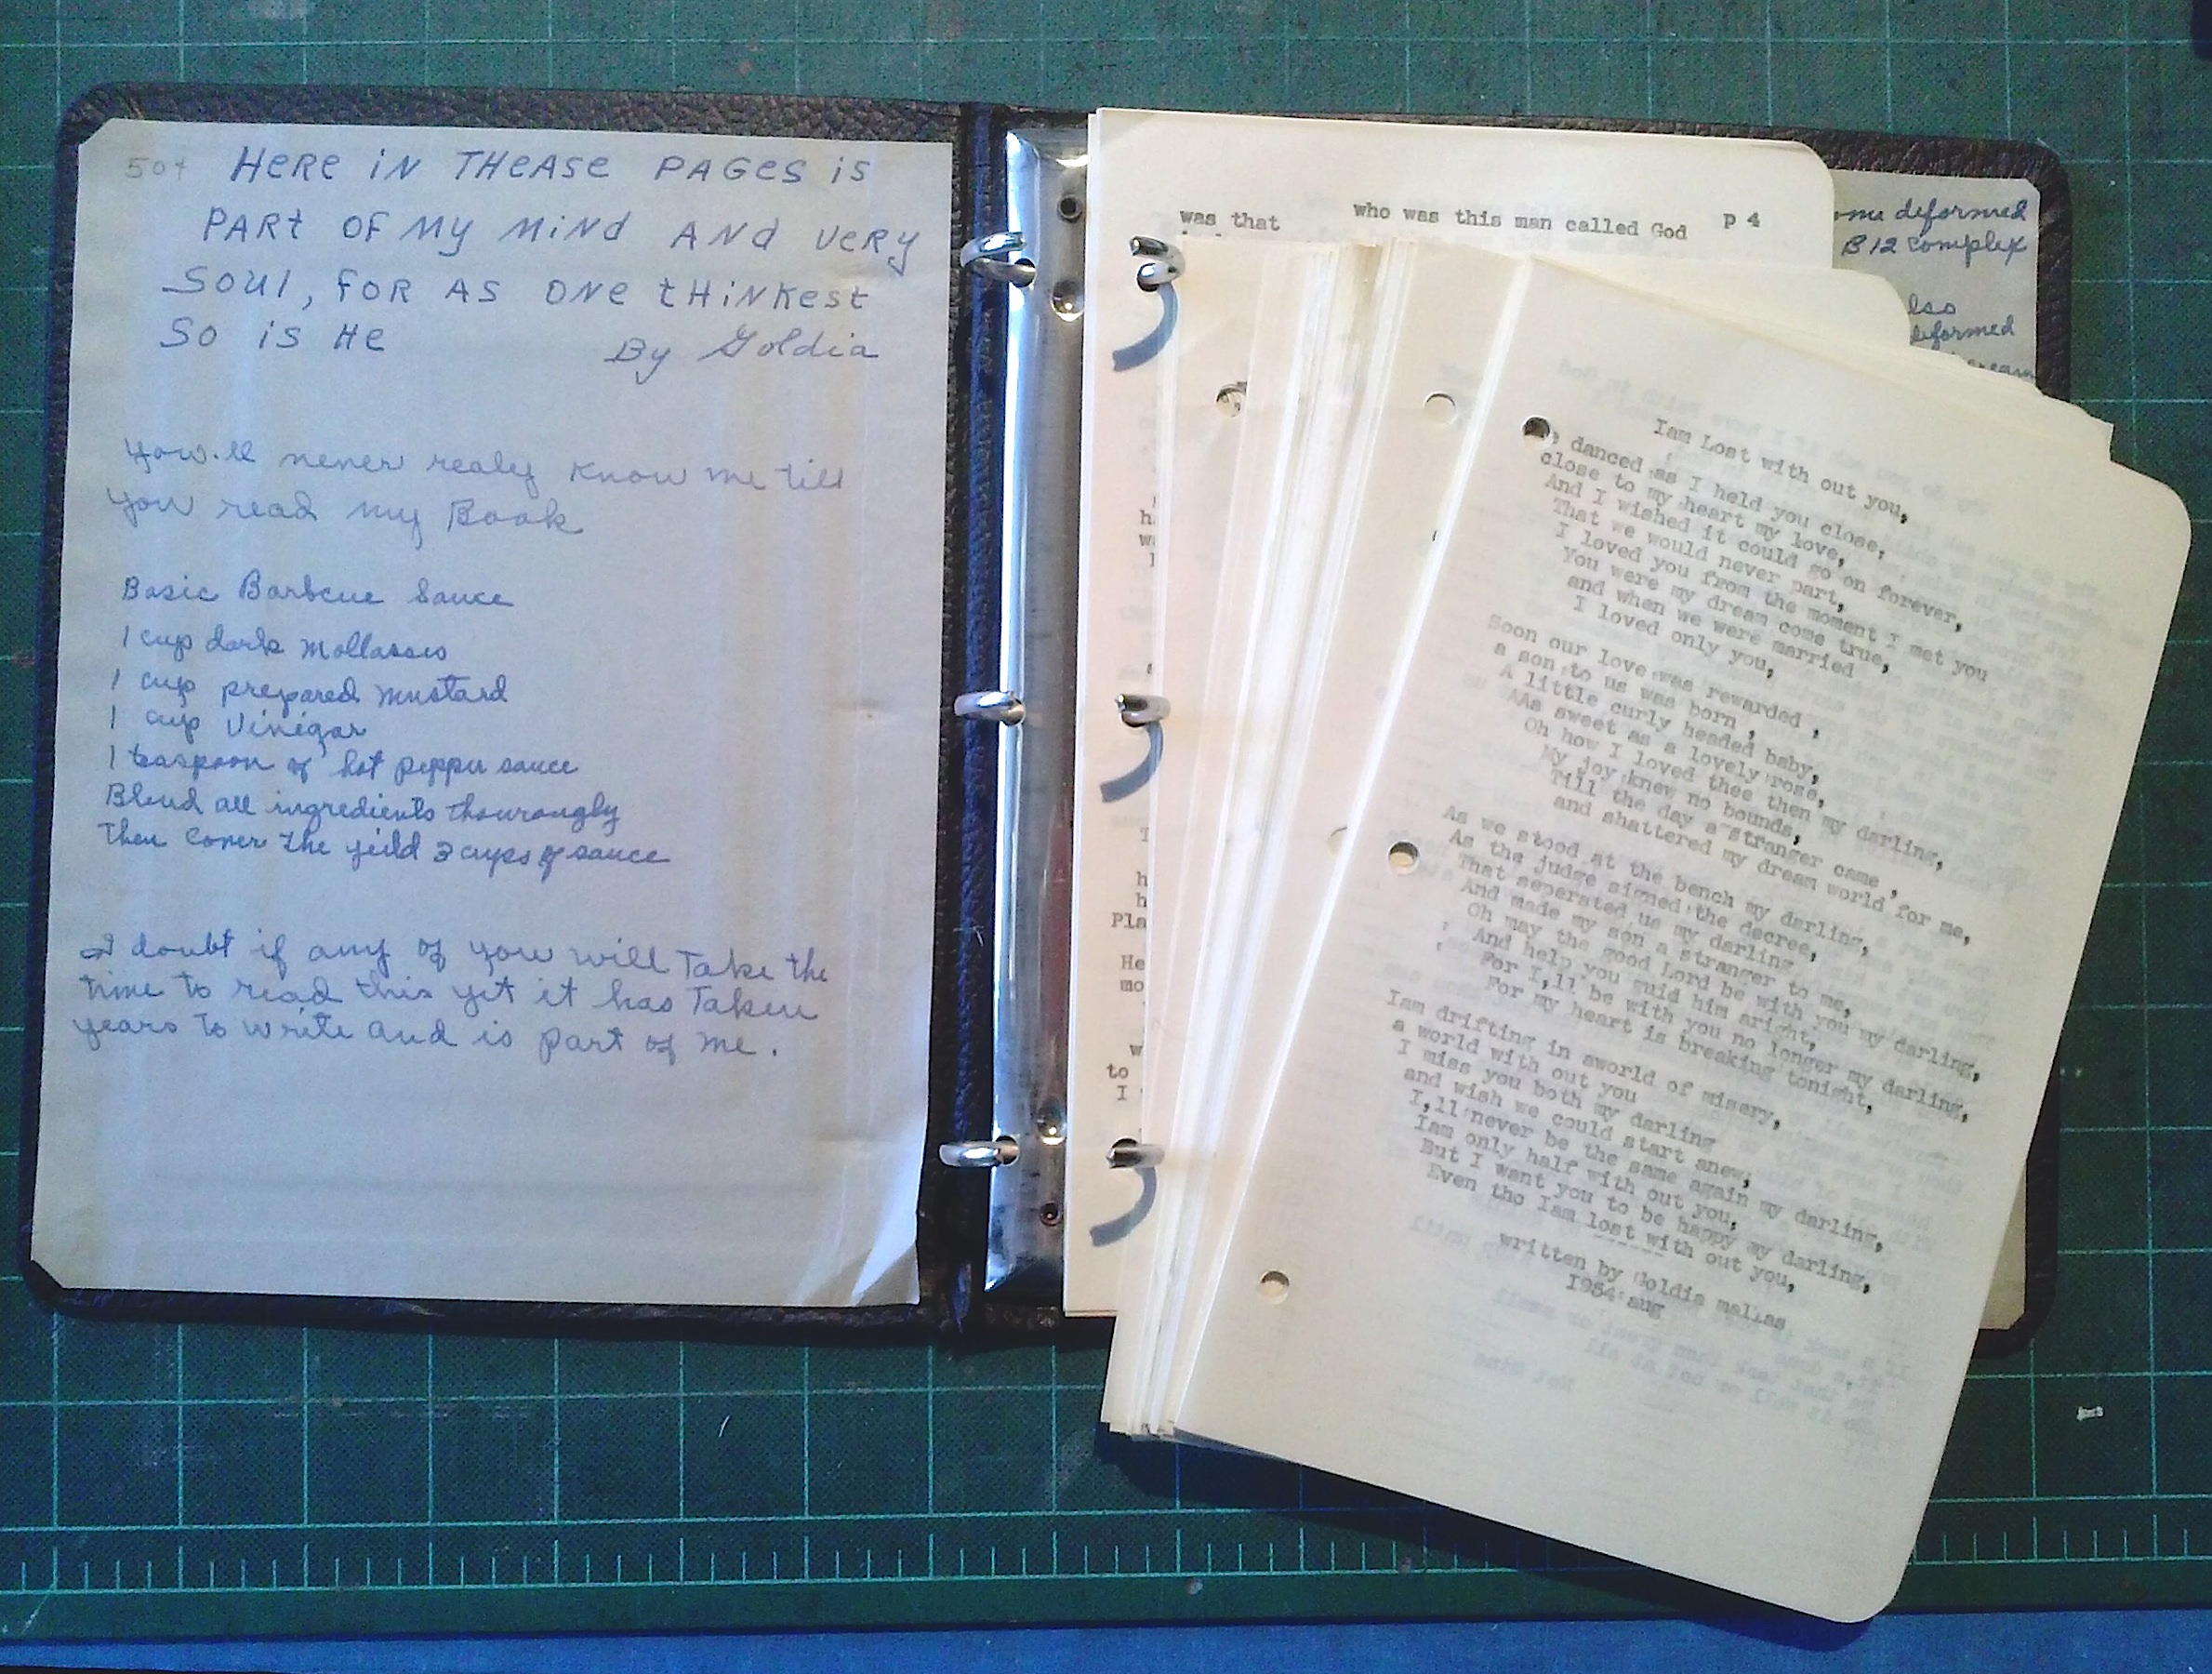 50¢
HERE iN THEASE PAGES iS
PARt OF MY MiNd ANd VERY
SOUl, FOR AS ONE tHiNKest
SO is He
By Goldia
You.ll never realy know me till
you read my Book
Basic Barbcue Sauce
1 cup dark mollasses
1 cup prepared mustard
1 cup Vinigar
1 teaspoon of hot pepper sauce
Blend all ingredients thourongly
Then cover the yeild 3 cups of sauce
I doubt if any of you will Take the
time to read this yet it has Taken
years to write and is part of me.
was that
who was this man called God p 4
deformed
B12 complex
deformed
Pla
He
mo
to
I
Iam Lost with out you,
danced as I held you close,
close to my heart my love,
And I wished it could go on forever,
That we would never part,
I loved you from the moment I met you
You were my dream come true,
and when we were married
I loved only you,
Soon our love was rewarded ,
a son to us was born ,
A little curly headed baby,
AAs sweet as a lovely rose,
Oh how I loved thee then my darling,
My joy knew no bounds,
Till the day a stranger came ,
and shattered my dream world for me,
As we stood at the bench my darling,
As the judge signed the decree,
That seperated us my darling,
And made my son a stranger to me,
Oh may the good Lord be with you my darling,
And help you guid him aright,
For I,ll be with you no longer my darling,
For my heart is breaking tonight,
Iam drifting in aworld of misery,
a world with out you
I miss you both my darling
and wish we could start anew;
I,ll never be the same again my darling,
Iam only half with out you,
But I want you to be happy my darling,
Even tho Iam lost with out you,
written by Goldia mallas
1954 aug